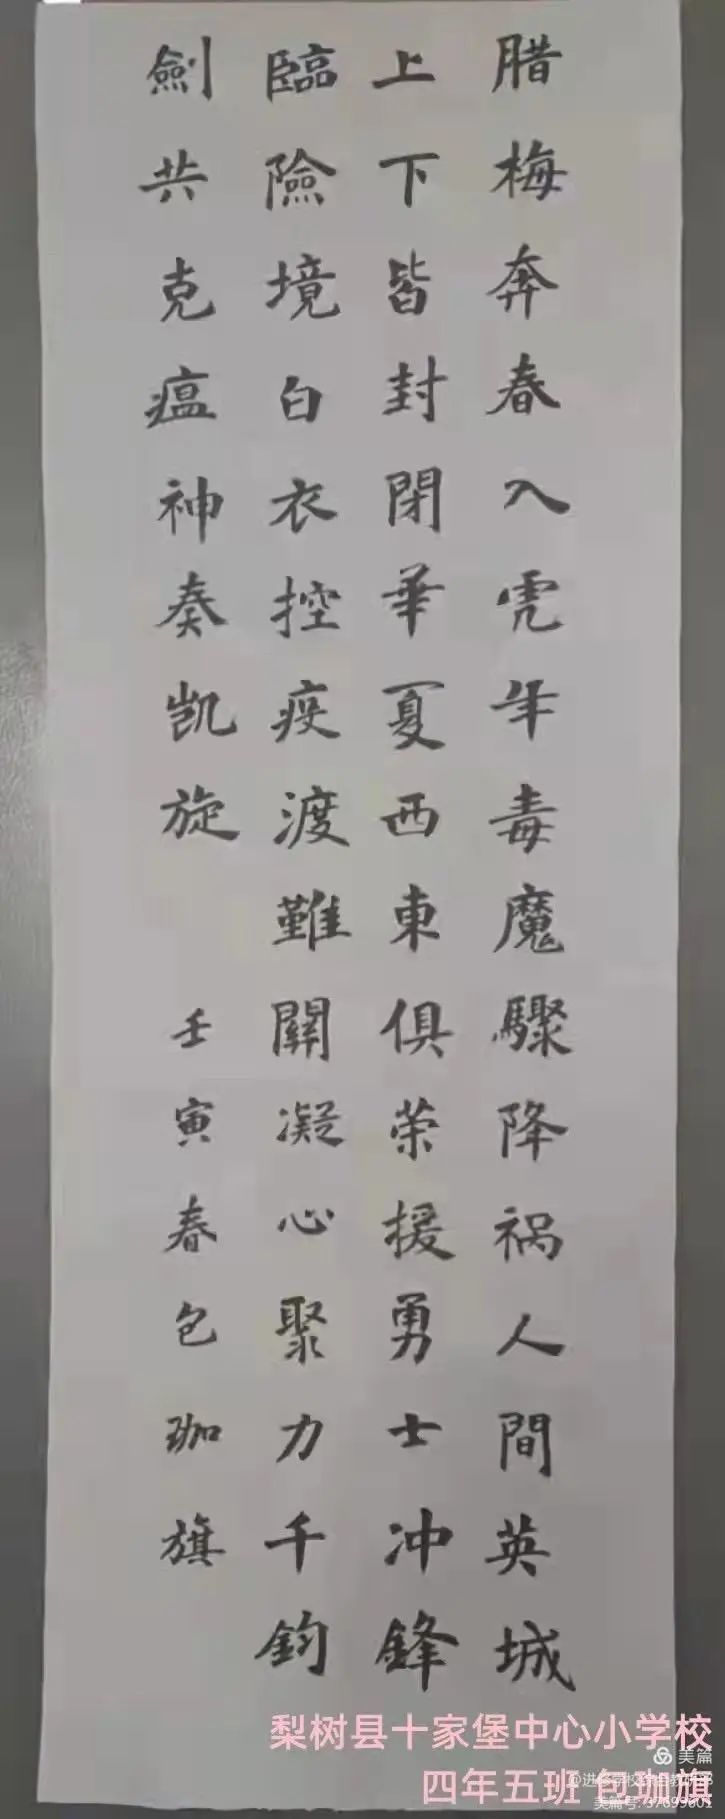 腊梅奔春入虎年毒魔驟降祸人間英城
上下皆封閉華夏西東俱荣援勇士冲鋒
臨險境白衣控疫渡難關凝心聚力千鈞
劍共克瘟神奏凯旋
壬寅春包珈旗
梨树县十家堡中心小学校
四年五班 包珈旗
美篇